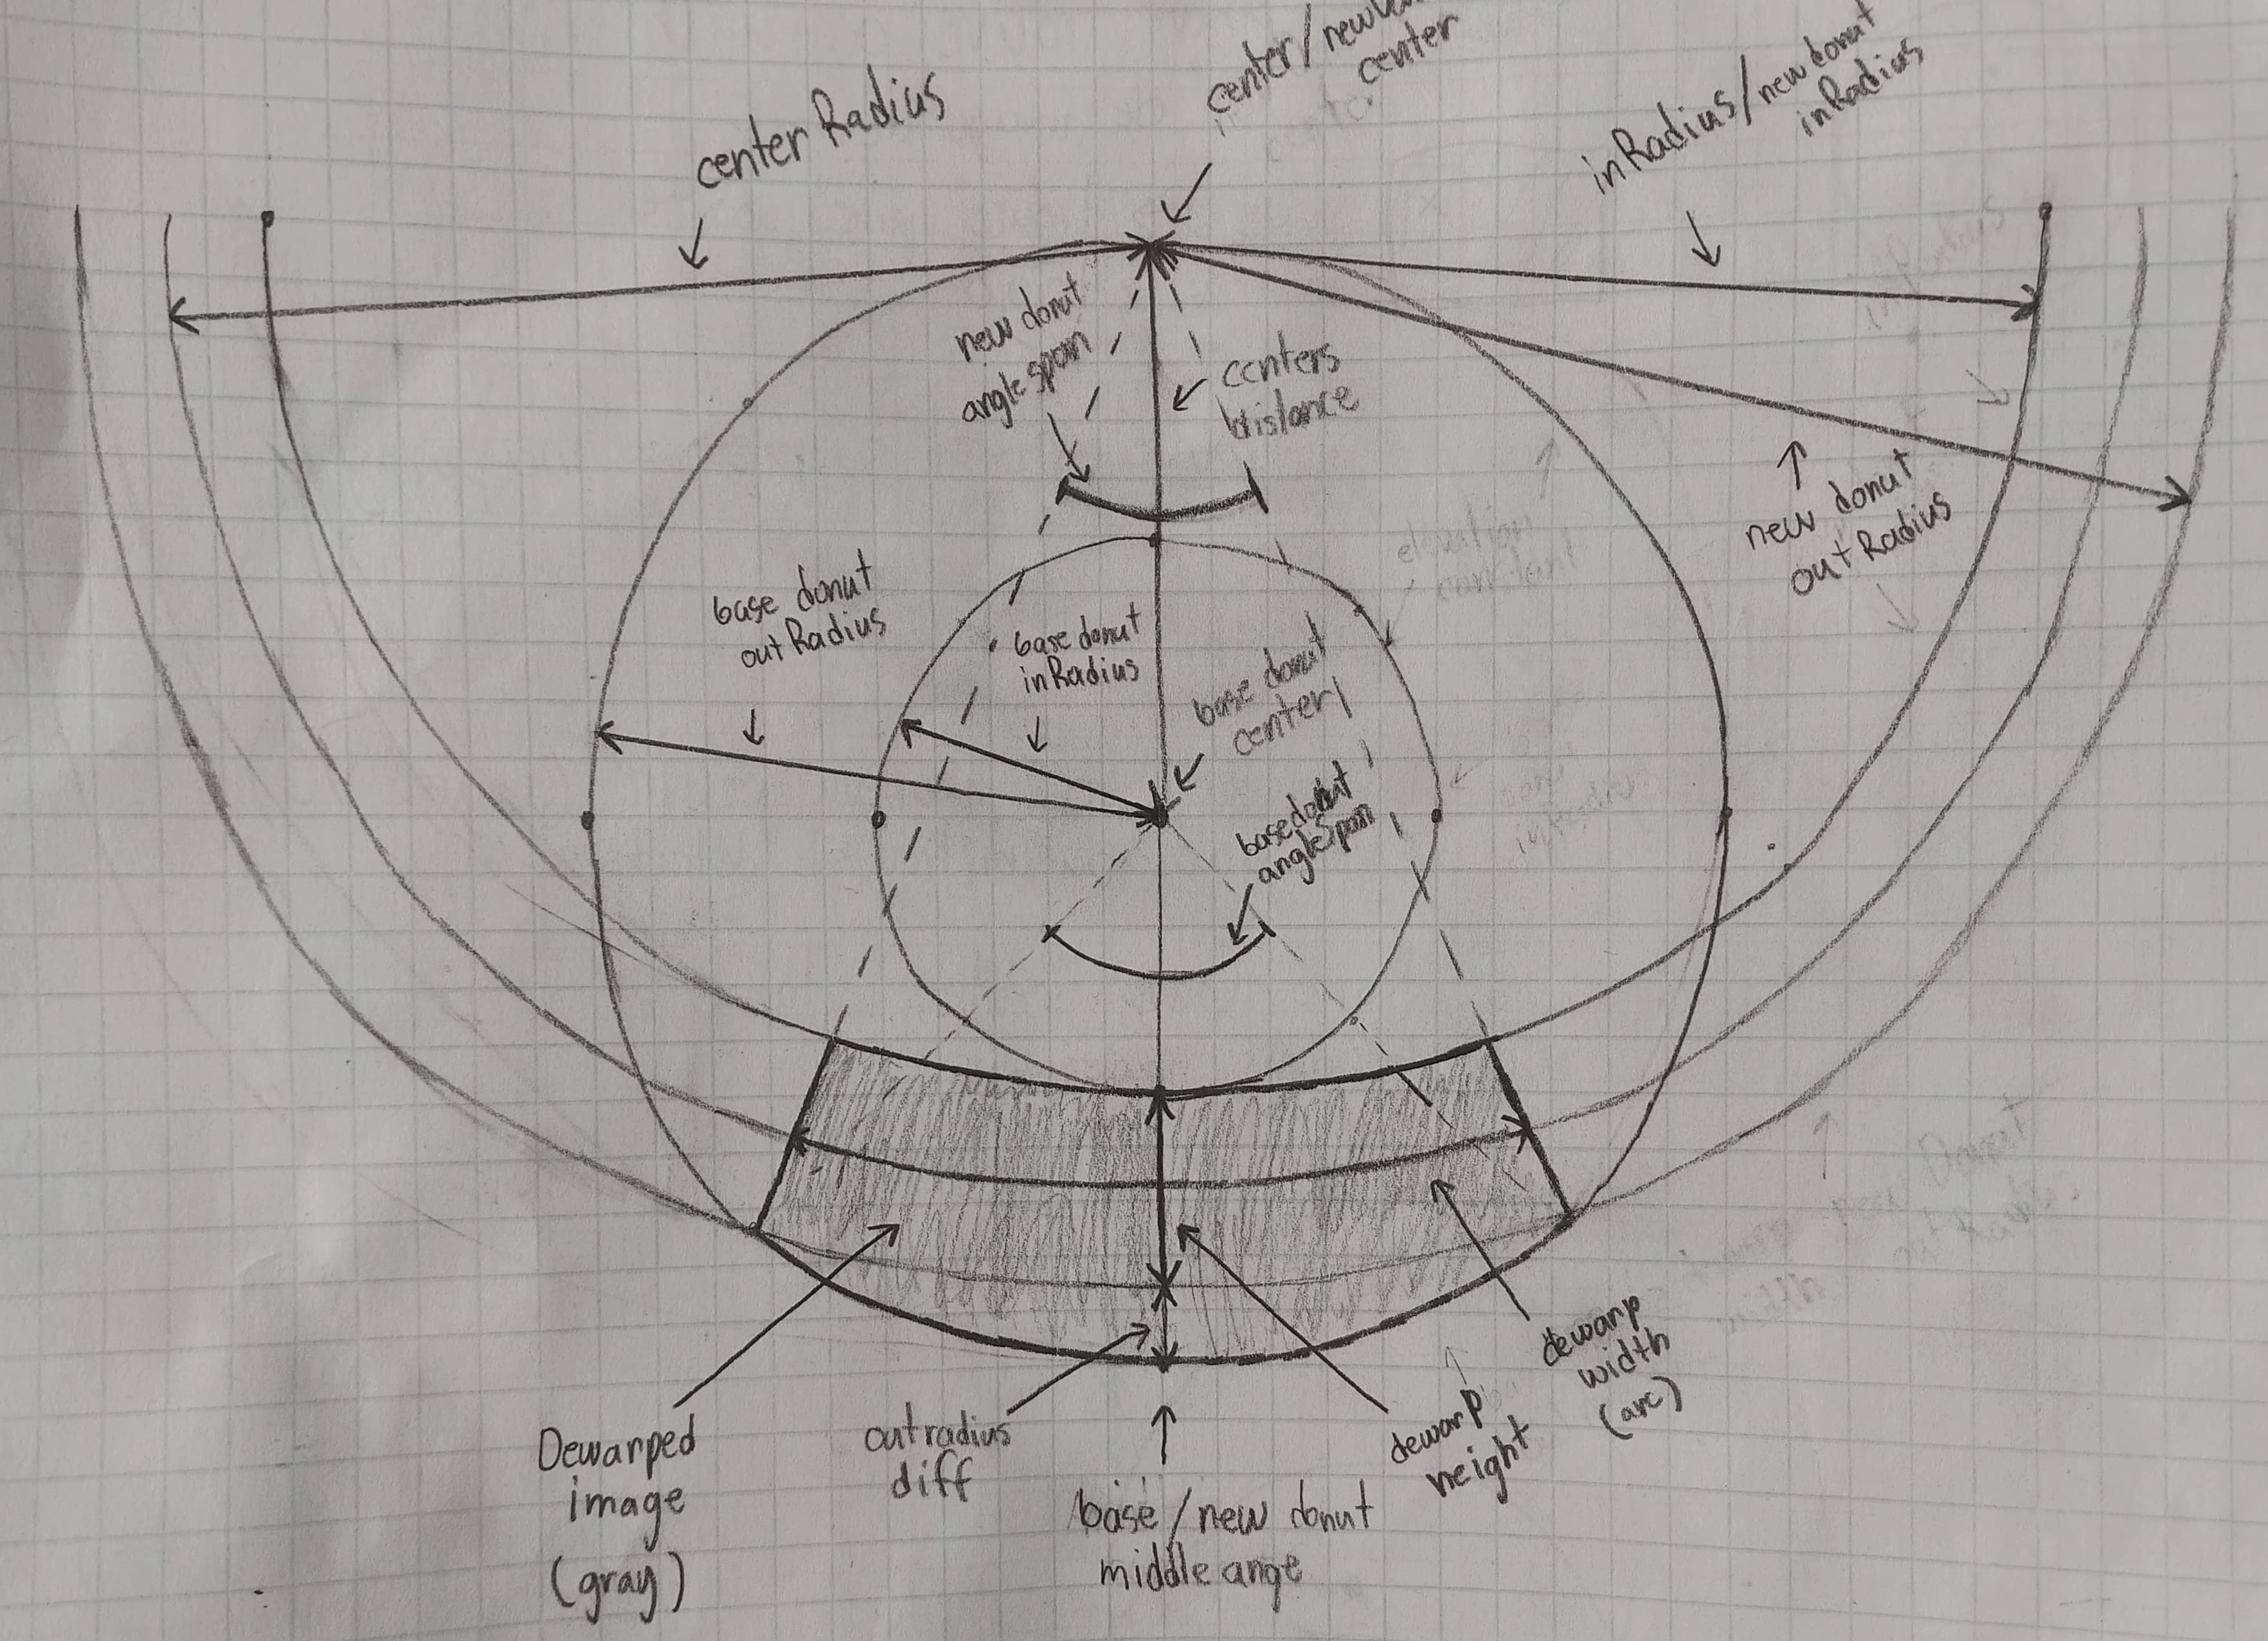 center Radius
center/new
center
inRadius/new donut
inRadius
new donut
angle span
centers
distance
new donut
outRadius
base donut
outRadius
base donut
inRadius
base donut
center
base donut
angleSpan
elevation
Dewarped
image
(gray)
outradius
diff
base/new donut
middle ange
dewarp
height
dewarp
width
(arc)